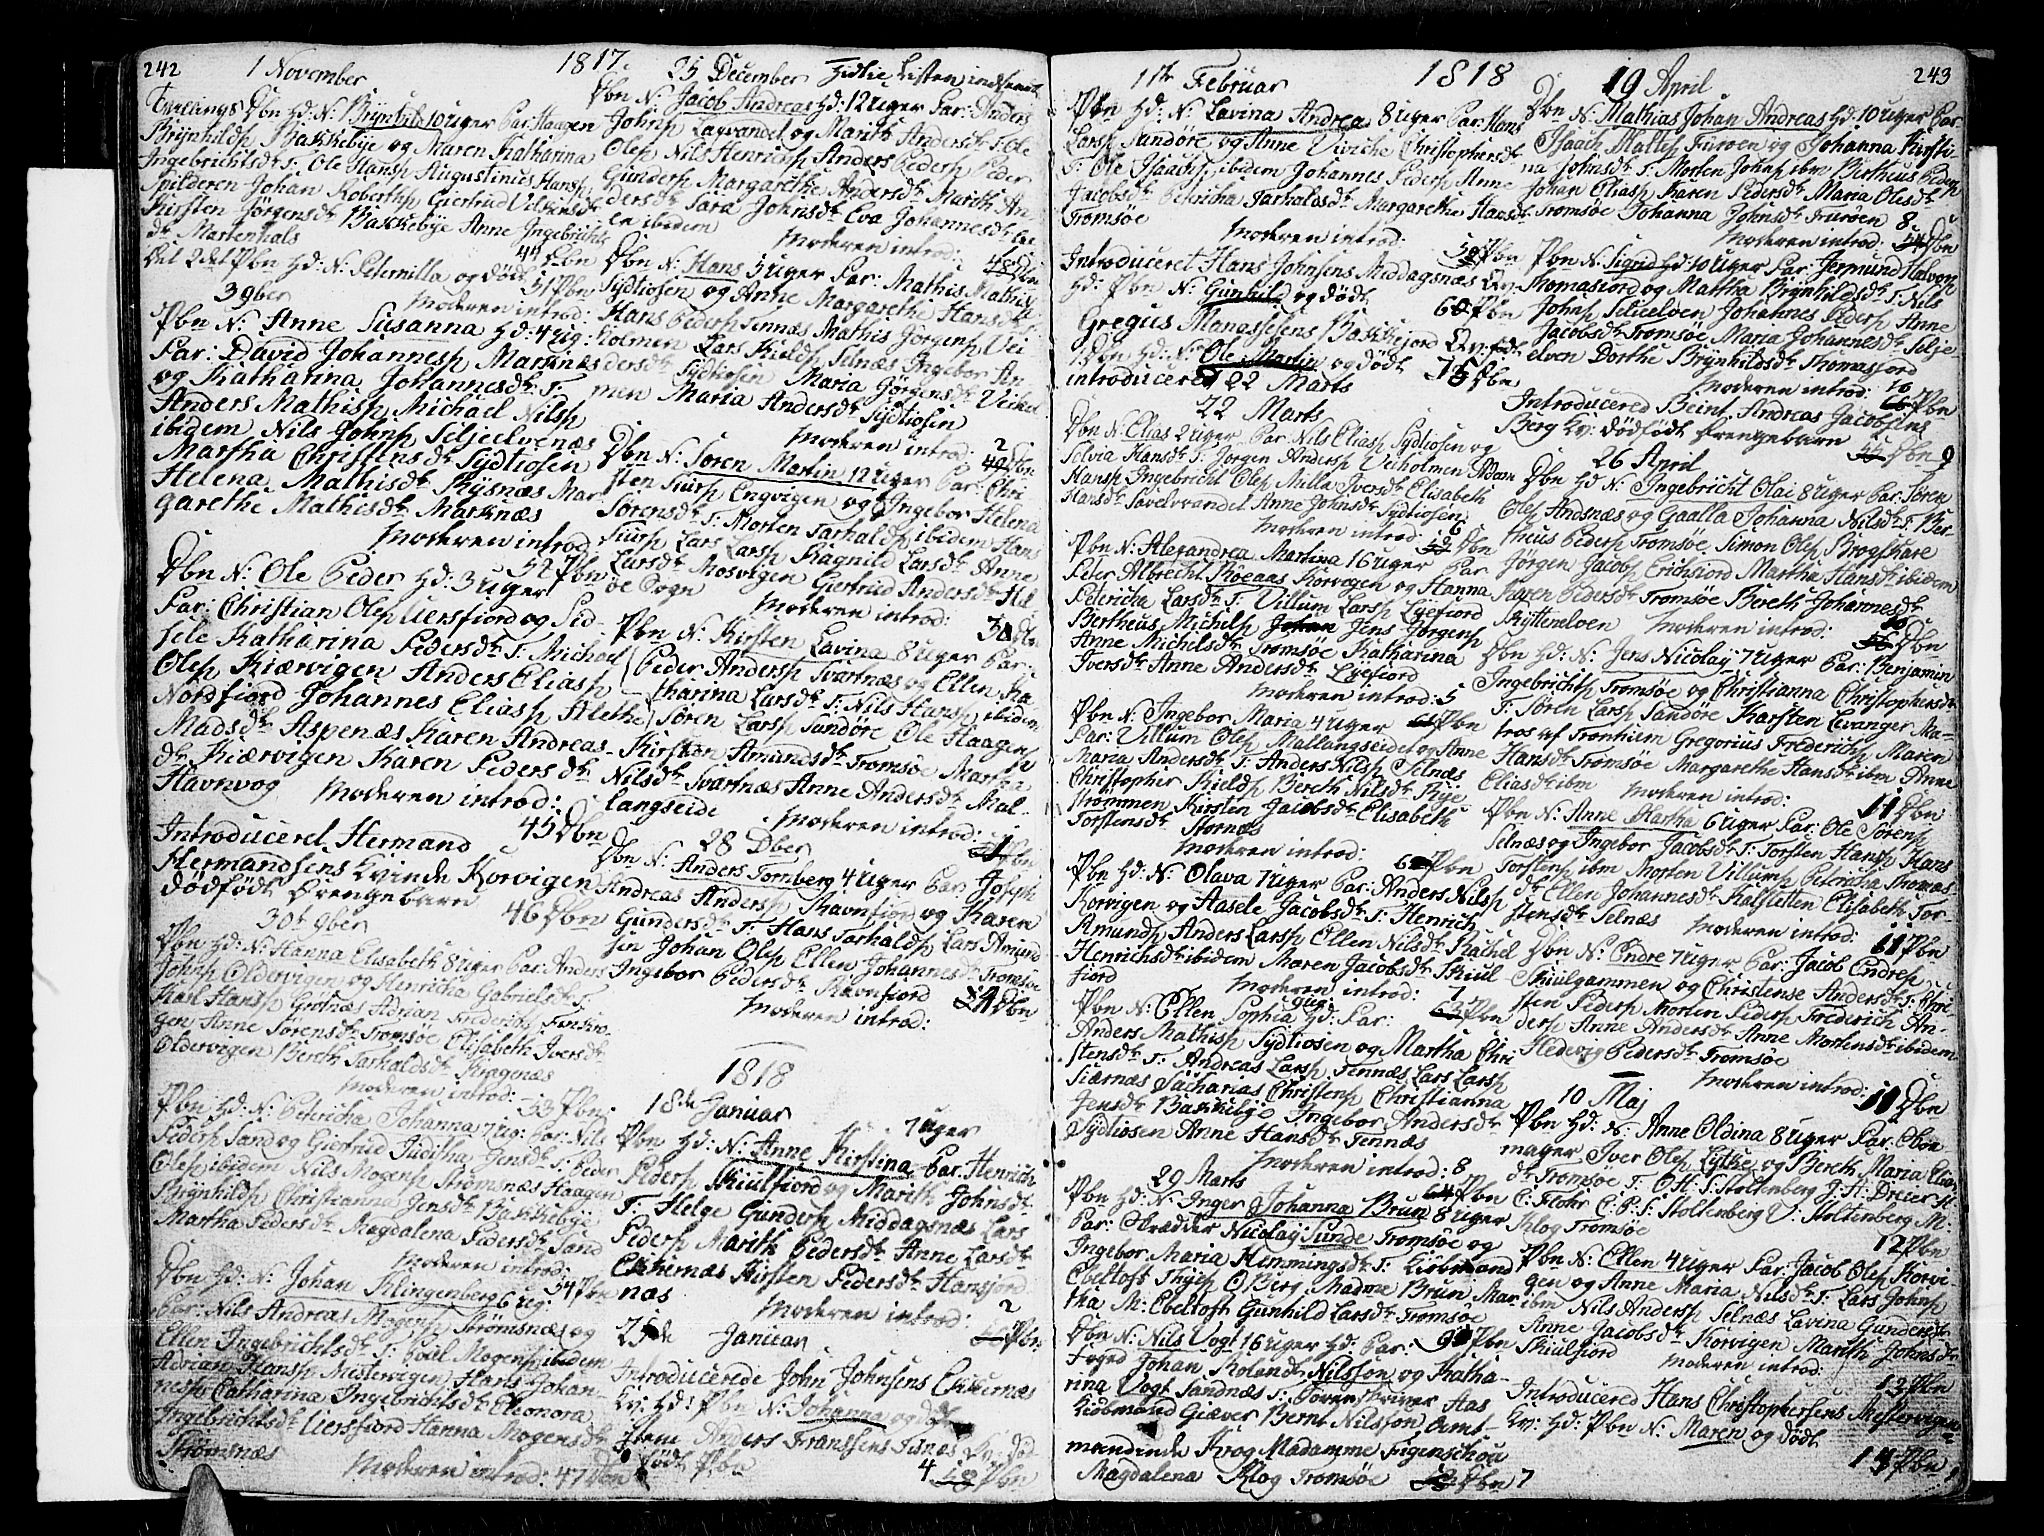 242
1 November
1817.
Tvillings Dbn Hd: N: Brÿnhild 10 Uger Par: Haagen
Brÿnhildsp Bakkebÿe og Maren Katharina
Ingebrichtsdr T: Ole Hansp Augustinus Hansp
Spilderen Johan Robertsp Giertrud
Kirsten Jörgensdr Bakkebÿe Anne Ingebrichts
dr Martenhals
44 Dbn
Det 2det Pbn Hd: N: Peternilla og döde
51 Pbn
3 9ber
Moderen introd:
Pbn N: Anne Susanna Hd: 4 Ug:
Par: David Johannesp Marknæs
og Katharina Johannesdr T:
Anders Mathisp Michael Nilsp
ibidem Nils Johnp Seljeelvenæs
Martha Christensdr Sÿdtiosen
Helena Mathisdr Rÿsnæs Mar
garethe Mathisdr Marknæs
Moderen introd
52 Pbn
Dbn N: Ole Peder Hd: 3 Uger
Par: Christian Olep Uersfiord og Sid-
sele Katharina Pedersdr T: Michael
Olep Kiærvigen Anders Eliasp
Nordfiord Johannes Eliasp Alethe
Madsdr Aspenæs Karen Andreas-
dr Kiærvigen Karen Pedersdr
Havnvog Moderen introd:
45 Dbn
Introduceret Hermand
Hermandsens Kvinde Korvigen
dödfödt Drengebarn
46 Dbn
30t 9ber
Pbn Hd: N: Hanna Elisabeth 8 Uger Par: Anders
Johnp Oldervigen og Henricha Gabrielsdr T:
Karl Hansp Grotnæs Adrian Frederichp
gen Anne Sörensdr Tromsöe Elisabeth Iversdr
Oldervigen Bereth Tarhaldsdr Kragenæs
Moderen introd: 53 Pbn
Pbn Hd: N: Petricha Johanna 7 Ug: Par: Nils
Pedersp Sand og Giertrud Juditha Jensdr T: Peder
Olsp ibidem Nils Mogensp Strömsnæs Haagen
Brÿnhildsp Christianna Jensdr Bakkebÿe
Martha Pedersdr Magdalena Pedersdr Sand
Moderen introd:
54 Pbn
Dbn Hd: N: Johan Klingenberg 6 Ug:
Par: Nils Andreas Mogensp Strömsnæs og
Ellen Ingebrichtsdr T: Poul Mogensp ibidem
Adrian Hansp Mestervigen Hans Johan-
nesp Catharina Ingebrichtsdr Eleonora
Ingebrichtsdr Uersfiord Hanna Mogensdr
Strömsnæs
Moderen introd: 47 Dbn
25 December
Dbn N: Jacob Andreas Hd: 12 Uger Par: Anders
Johnp Lavvandet og Marith Andersdr T: Ole
Olep Nils Henrichp Anders Pedersp Peder
Gundersp Margarethe Andersdr Marith An
dersdr Sara Johnsdr Eva Johannesdr
ibidem
Moderen introd:
48 Dbn
Dbn N: Hans 5 Uger Par: Mathis Mathis
Sÿdtiosen og Anne Margarethe Hansdr
Hans Pedersp Tennæs Mathis Jörgensp Vei
holmen Lars Kieldsp Selnæs Ingebor An
dersdr Sÿdtiosen Maria Jörgensdr Veihol
men Maria Andersdr Sÿdtiosen
Moderen introd:
2
49 Dbn
Dbn N: Sören Martin 12 Uger Par: Chri
sten Siursp Engvigen og Ingebor Helena
Sörensdr T: Morten Tarhaldsp ibidem Hans
Siursp Lars Larsp Ragnild Larsdr Anne
Larsdr Mosvigen Giertrud Andersdr
öe Sogn
Moderen introd:
3 Dbn
Pbn N: Kirsten Lavina 8 Uger Par:
Peder Andersp Svartnæs og Ellen Ka
tharina Larsdr T: Nils Hansp ibidem
Sören Larsp Sandöre Ole Haagensp
Kirsten Amundsdr Tromsöe Martha
Nilsdr Svartnæs Anne Andersdr Mal-
langseide
Moderen introd:
1 Pbn
28 Dber
Dbn N: Anders Tornberg 4 Uger Par: Joseph
Andreas Andersp Ravnfiord og Karen
Gundersdr T: Hans Tarhaldsp Lars Amund
sen Johan Olep Ellen Johannesdr Tromsöe
Ingebor Pedersdr Ravnfiord
Moderen introd:
Dbn
1818
18de Januar
7 Uger
Pbn Hd: N: Anne Kirstina Par: Henrich
Pedersp Skiulfiord og Marith Johnsdr
T: Helge Gundersp Middagsnæs Lars
Pedersp Marith Pedersdr Anne Larsdr
Eikernæs Kirsten Pedersdr Hansjord
næs
Moderen introd:
2
Pbn
25de Januar
Introducerede John Johnsens Eikkernæs
Kv: Hd: Pbn N: Johanna og död
Item Anders Franssens
dödf Pbn
4
Pbn
11te Februar
1818
243
Pbn Hd: N: Lavina Andrea 8 Uger Par: Hans
Larsp Sandöre og Anne Viviche Christophersdr
T: Ole Isaachp ibidem Johannes Pedersp Anne
Jacobsdr Petricha Tarhaldsdr Margarethe Hansdr
Tromsöe
Moderen introd:
Pbn
Introduceret Hans Johnsens Middagsnæs Kv:
Hd: Pbn N: Gunhild og dödt
60 Pbn
Gregus Manassesens Balsfiord Kv: födt
1 Dbn Hd: N: Ole Martin og dödt
Dbn
introduceret 22 Marts
22 Marts
Dbn N: Elias 2 Uger Par: Nils Eliasp Sÿdtiosen og
Selvia Hansdr T: Jörgen Andersp Veiholmen Adam
Hansp Ingebricht Olep Milla Iversdr Elisabeth
Hansdr Sarelvvandet Anne Johnsdr Sÿdtiosen
Moderen introd:
6
Dbn
Pbn N: Alexandrea Martina 16 Uger Par
Peter Albrecht Röeaas Korvigen og Hanna
Pedericha Larsdr T: Villum Larsp Lÿefiord
Bertheus Michelsp Johan Jens Jörgensp
Anne Michelsdr Tromsöe Katharina
Iversdr Anne Andersdr Lÿefiord
Moderen introd: 5
Pbn
Pbn N: Ingebor Maria 4 Uger
Par: Villum Olep Mallangseidet og Anne
Maria Andersdr T: Anders Nilsp Selnæs
Christopher Kieldsp Bereth Nilsdr Rÿe
Strömmen Kirsten Jacobsdr Elisabeth
Torstensdr Stornæs
Moderen introd:
6 Pbn
Pbn Hd: N: Olava 7 Uger Par: Anders Nilsp
Korvigen og Aasele Jacobsdr T: Henrich
Amundsp Anders Larsp Ellen Nilsdr Rachel
Henrichsdr ibidem Maren Jacobsdr Skiul
fiord
Moderen introd:
7
Pbn
Pbn N: Ellen Sophia 9 Ug: Hd: Par:
Anders Mathisp Sÿdtiosen og Martha Chri
stensdr T: Andreas Larsp Tennæs Lars Larsp
Siærnæs Zacharias Christensp Christianna
Jensdr Bakkebÿe Ingebor Andersdr
Sÿdtiosen Anne Hansdr Tennæs
Moderen introd: 8
Pbn
29 Marts
Pbn Hd: N: Inger Johanna Brun 8 Uger
Par: Skrædder Nicolaÿ Sunde Tromsöe og
Ingebor Maria Hemmingsdr T: Kiöbmand
Ebeltoft Thÿesp O Berg Madme Brun Mar
tha M: Ebeltoft Gunhild Larsdr Tromsöe
9 Pbn
Dbn N: Nils Vogt 16 Uger Hd: Par:
Foged Johan Rolandt Nilsson og Katha-
rina Vogt Sandnæs T: Sorenskriver Aas
Kiöbmand Giæver Bernt Nilsson Amt
mandinde Krog Madamme Figenschou
Magdalena Klog Tromsöe
Dbn 7
19 April
Dbn N: Mathias Johan Andreas Hd: 10 Uger Par
Isaach Maltesp Furöen og Johanna Kirsti
na Johnsdr T: Morten Johnp ibm Bertheus Pedersp
Johan Eliasp Karen Pedersdr Maria Olesdr
Tromsöe Johanna Johnsdr Furöen 8
Moderen introd:
54 Dbn
Pbn N: Sigrid Hd: 10 Uger Par: Jermund Halvorsp
Thomasiord og Martha Brÿnhildsdr T: Nils
Johnsp Seljeelven Johannes Pedersp Anne
Jacobsdr Tromsöe Maria Johannesdr Selje
elven Dorthe Brÿnhildsdr Thomasfiord
Moderen introd:
10
Pbn
Introducered Beint Andreas Jacobsens
Berg Kv: dödfödt Drengebarn
Dbn 9
26 April
Dbn Hd: N: Ingebricht Olai 8 Uger Par: Sören
Olep Andsnæs og Gaalla Johanna Nilsdr T: Ber-
theus Pedersp Tromsöe Simon Olep Brogskare
Jörgen Jacobsp Erichsiord Martha Hansdr ibidem
Karen Pedersdr Tromsöe Bereth Johannesdr
Rÿttereloen Moderen introd:
10
Dbn
Dbn Hd: N: Jens Nicolaÿ 7 Uger Par: Benjamin
Ingebrichtsp Tromsöe og Christianna Christophersdr
T: Sören Larsp Sandöre Karsten Levanger Ma-
tros af Tronhiem Gregorius Frederichsp Maren
Hansdr Tromsöe Margarethe Hansdr ibm Anne
Eliasdr ibm Moderen introd:
11 Dbn
Pbn N: Anne Martha 6 Uger Par: Ole Sörensp
Selnæs og Ingebor Jacobsdr T: Torsten Hansp Hans
Torstensp ibm Morten Villumsp Petricha Thomæs
dr Ellen Johannesdr Kalsletten Elisabeth Tor-
stensdr Selnæs Moderen introd:
11 Pbn
Dbn N: Endre 7 Uger Par: Jacob Endresp
Skiulgammen og Christense Andersdr T: Chri
sten Pedersp Morten Pedersp Frederich An-
dersp Anne Andersdr Anne Mortensdr ibidem
Hedevig Pedersdr Tromsöe
Moderen introd:
11 Dbn
10 Maj
Pbn Hd: N: Anne Oldina 8 Uger Par: Skoe
mager Iver Olep Lÿtke og Bereth Maria Elia
dr Tromsöe T: O: H: S: Stoltenberg J: H: Dreier M:
C: Flohr C: P: S: Stoltenberg V: Stoltenberg M:
Klog Tromsöe
12 Pbn
Pbn N: Ellen 4 Uger Par: Jacob Olep Korvi
gen og Anne Maria Nilsdr T: Lars Johnp
ibm Nils Andersp Selnæs Lavina Gundersdr
Anne Jacobsdr Korvigen Marith Johnsdr
Skiulfiord Moderen introd:
13 Pbn
Introducered Hans Christophersens Mestervigen
Kv: Hd: Pbn N: Maren og dödt
14 Pbn